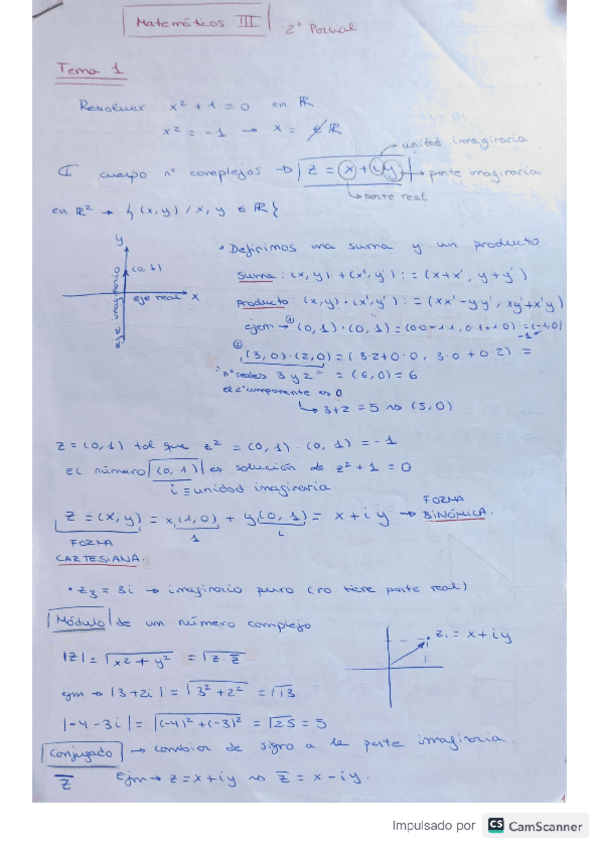 Matemáticas III 2º Parcial
Tema 1
Resolver x² + 1 = 0 en ℝ
x² = -1 → x = ∉ ℝ
unidad imaginaria
ℂ cuerpo nº complejos → z = x + iy → parte imaginaria
parte real
en ℝ² → {(x, y) / x, y ∈ ℝ}
y
(0, 1)
eje real x
eje imaginario
• Definimos una suma y un producto
Suma: (x, y) + (x', y') := (x+x', y+y')
Producto: (x, y) · (x', y') := (xx' - yy', xy' + x'y)
ejem → ① (0, 1) · (0, 1) = (0·0 - 1·1, 0·1 + 1·0) = (-1, 0)
-1
② (3, 0) · (2, 0) = (3·2 + 0·0, 3·0 + 0·2) =
nº reales 3 y 2 = (6, 0) = 6
el 2º componente es 0
↳ 3+2 = 5 → (5, 0)
z = (0, 1) tal que z² = (0, 1) · (0, 1) = -1
El número (0, 1) es solución de z² + 1 = 0
i ≡ unidad imaginaria.
z = (x, y) = x(1, 0) + y(0, 1) = x + iy → FORMA BINÓMICA.
1 i
FORMA CARTESIANA.
• z₃ = 3i → imaginario puro (no tiene parte real)
Módulo de un número complejo
z₁ = x + iy
|z| = √x² + y² = √z · z̄
ejm → |3 + 2i| = √3² + 2² = √13
|-4 - 3i| = √(-4)² + (-3)² = √25 = 5
Conjugado → cambiar de signo a la parte imaginaria.
z̄ Ejm → z = x + iy → z̄ = x - iy.
1
Impulsado por CS CamScanner